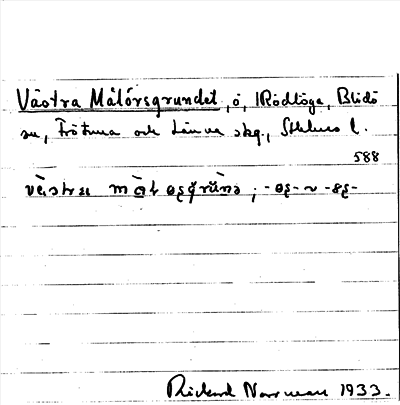 Västra Målörsgrundet, ö, i Rödlöga, Blidö
sn, Frötuna och Länna skg., Sthlms l.
588
västra
Rickard Norrman 1933.